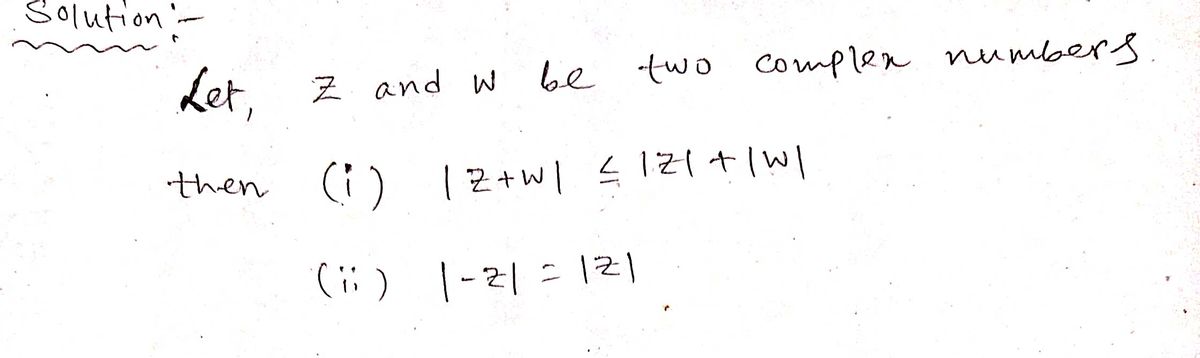 Solution:-
Let, Z and W be two complex numbers.
then (i) |Z+W| ≤ |Z| + |W|
(ii) |-Z| = |Z|